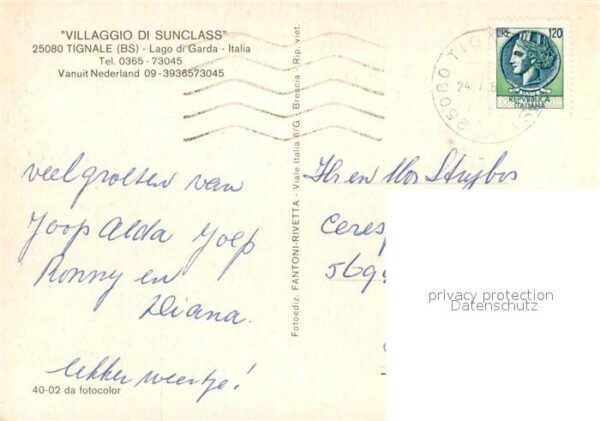 "VILLAGGIO DI SUNCLASS"
25080 TIGNALE (BS) - Lago di Garda - Italia
Tel. 0365 - 73045
Vanuit Nederland 09 - 3936573045
veel groeten van
Joop Alda Joep
Ronny en
Diana.
lekker weertje!
40-02 da fotocolor
Fotoediz. FANTONI-RIVETTA - Viale Italia 6/G - Brescia - Rip. viet.
LIRE 120
REPVBBLICA
ITALIANA
25080 TIG
24.
Hr en Mvs Strijbos
Ceres
569
privacy protection
Datenschutz